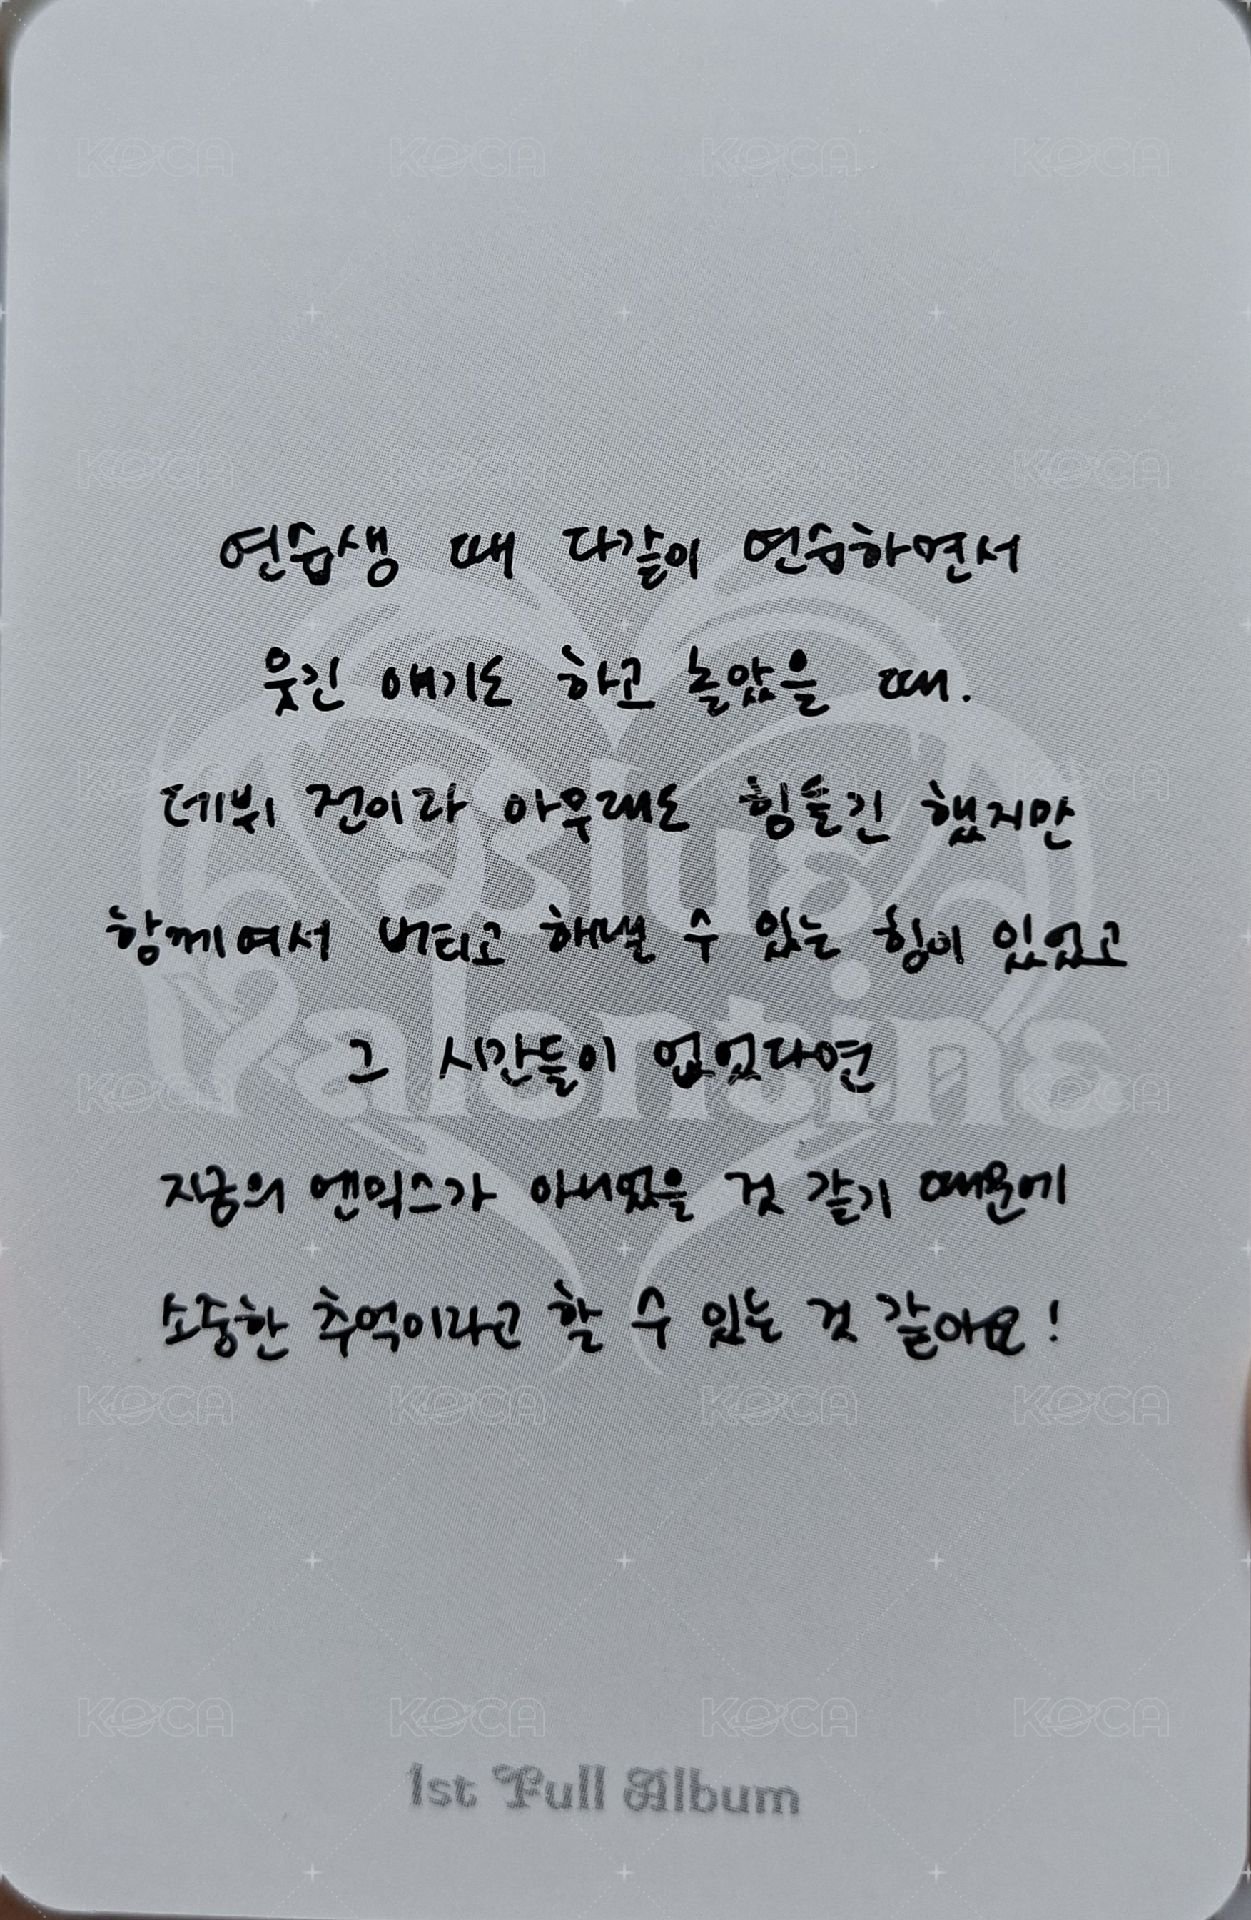 연습생 때 다같이 연습하면서
웃긴 얘기도 하고 놀았을 때.
데뷔 전이라 아무래도 힘들긴 했지만
함께여서 버티고 해낼 수 있는 힘이 있었고
그 시간들이 없었다면
지금의 엔믹스가 아니었을 것 같기 때문에
소중한 추억이라고 할 수 있는 것 같아요!
Blue
Valentine
1st Full Album
KOCA